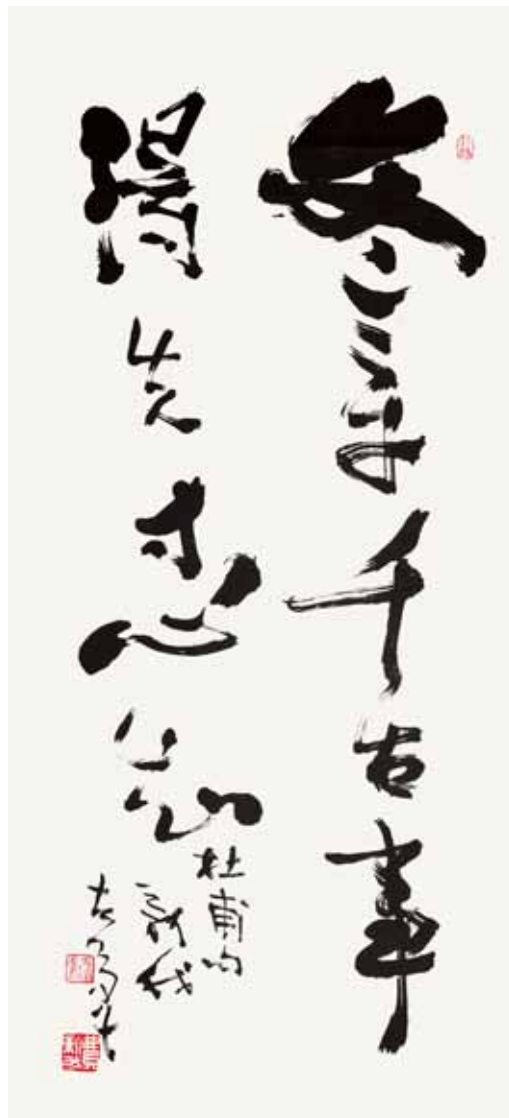 文章千古事
得失寸心知
杜甫句
新我